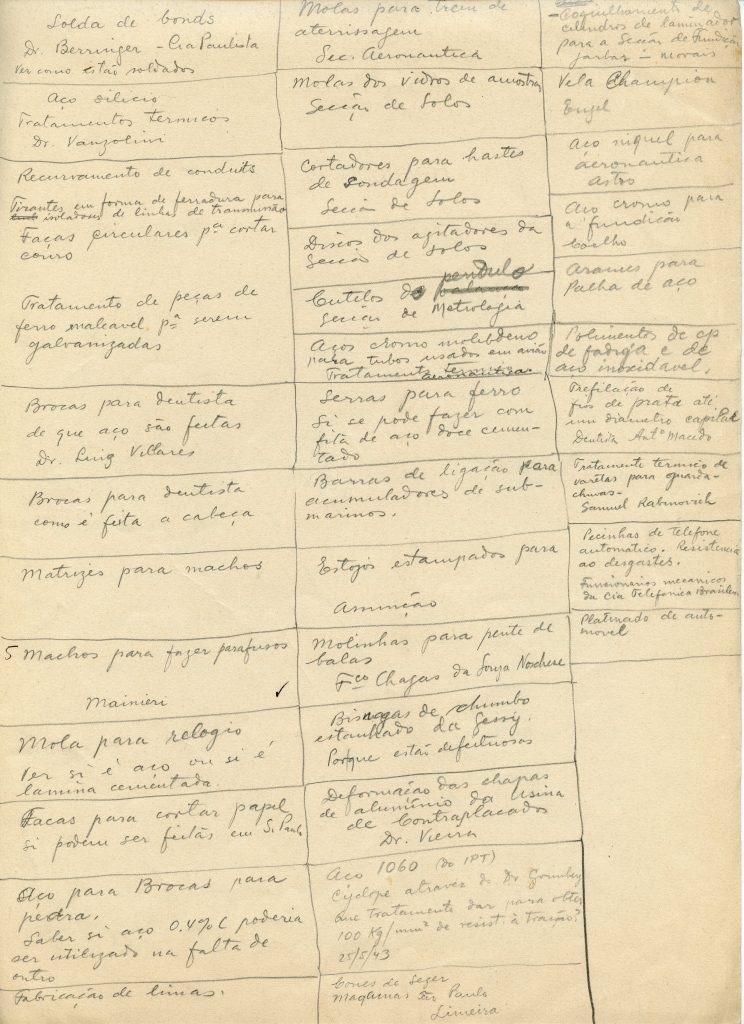 Solda de bonds
Dr. Berringer - Cia Paulista
Ver como estão soldados
Aço silicio
Tratamentos termicos
Dr. Vanzolini
Recurvamento de conduits
Tirantes em forma de ferradura para
isoladores de linhas de transmissão
Facas circulares pª cortar
couro
Tratamento de peças de
ferro maleavel pª serem
galvanizadas
Brocas para dentista
de que aço são feitas
Dr. Luiz Villares
Brocas para dentista
como é feita a cabeça
Matrizes para machos
5 Machos para fazer parafusos
Mainieri ✓
Mola para relogio
Ver si é aço ou si é
lamina cementada.
Facas para cortar papel
si podem ser feitas em S. Paulo
Aço para Brocas para
pedra.
Saber si aço 0.4% C poderia
ser utilizado na falta de
outro
Fabricação de limas.
Molas para trem de
aterrissagem
Sec. Aeronautica
Molas dos vidros de amostras
Secção de Solos
Cortadores para hastes
de sondagem
Secção de Solos
Discos dos agitadores da
Secção de Solos
pendulo
Cutelos do balança
Secção de Metrologia
Aços cromo molibdeno
para tubos usados em avião
Tratamento termico
Serras para ferro
Si se pode fazer com
fita de aço doce cemen-
tado
Barras de ligação para
acumuladores de sub-
marinos.
Estojos estampados para
Molinhas para pente de
balas
Fco Chagas da Souza Noschese
Bisnagas de chumbo
estanhado da Gessy.
Porque estão defeituosas
Deformação das chapas
de aluminio da usina
de Contraplacados
Dr. Vieira
Aço 1060 (do IPT)
Cyclope atravez do Dr
que tratamento dar para obter
100 Kg/mm² de resist. à tração?
25/5/43
Cones de Seger
Maquinas São Paulo
Limeira
- Coquilhamento de
cilindros de laminador
para a Secção de Fundição
Jarbas - Morais
Vela Champion
Engel
Aço niquel para
aeronautica
Astro
Aço cromo para
a fundição
Coelho
Arames para
Palha de aço
Polimentos de cp
de fadiga e de
aço inoxidavel.
Trefilação de
fios de prata até
um diametro capilar
Dentista Antº Macedo
Tratamento termico de
varetas para guarda-
chuvas-
Samuel Rabinovich
Pecinhas de Telefone
automatico. Resistencia
ao desgastes.
Funcionarios mecanicos
da Cia Telefonica Brasileira
Platinado de auto-
movel